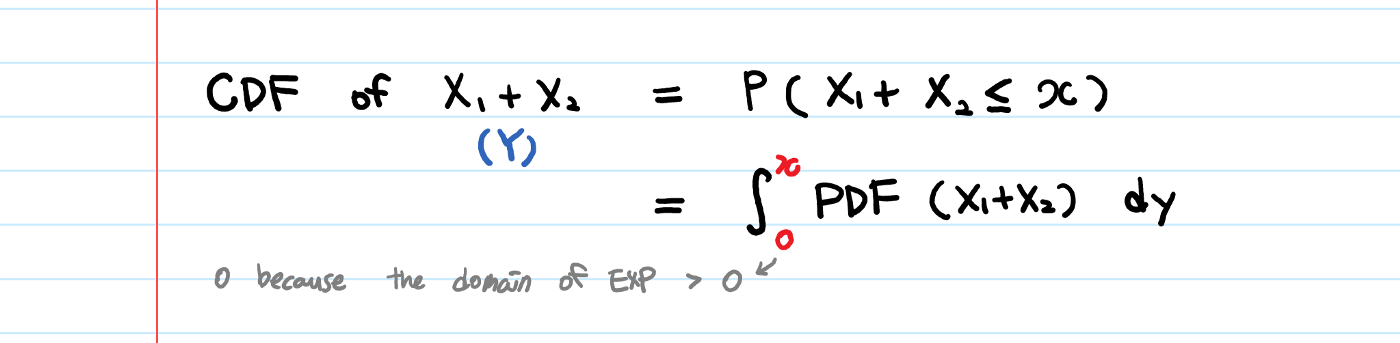 CDF of X₁ + X₂ = P ( X₁ + X₂ ≤ x )
(Y)
= ∫₀ˣ PDF (X₁+X₂) dy
0 because the domain of EXP > 0